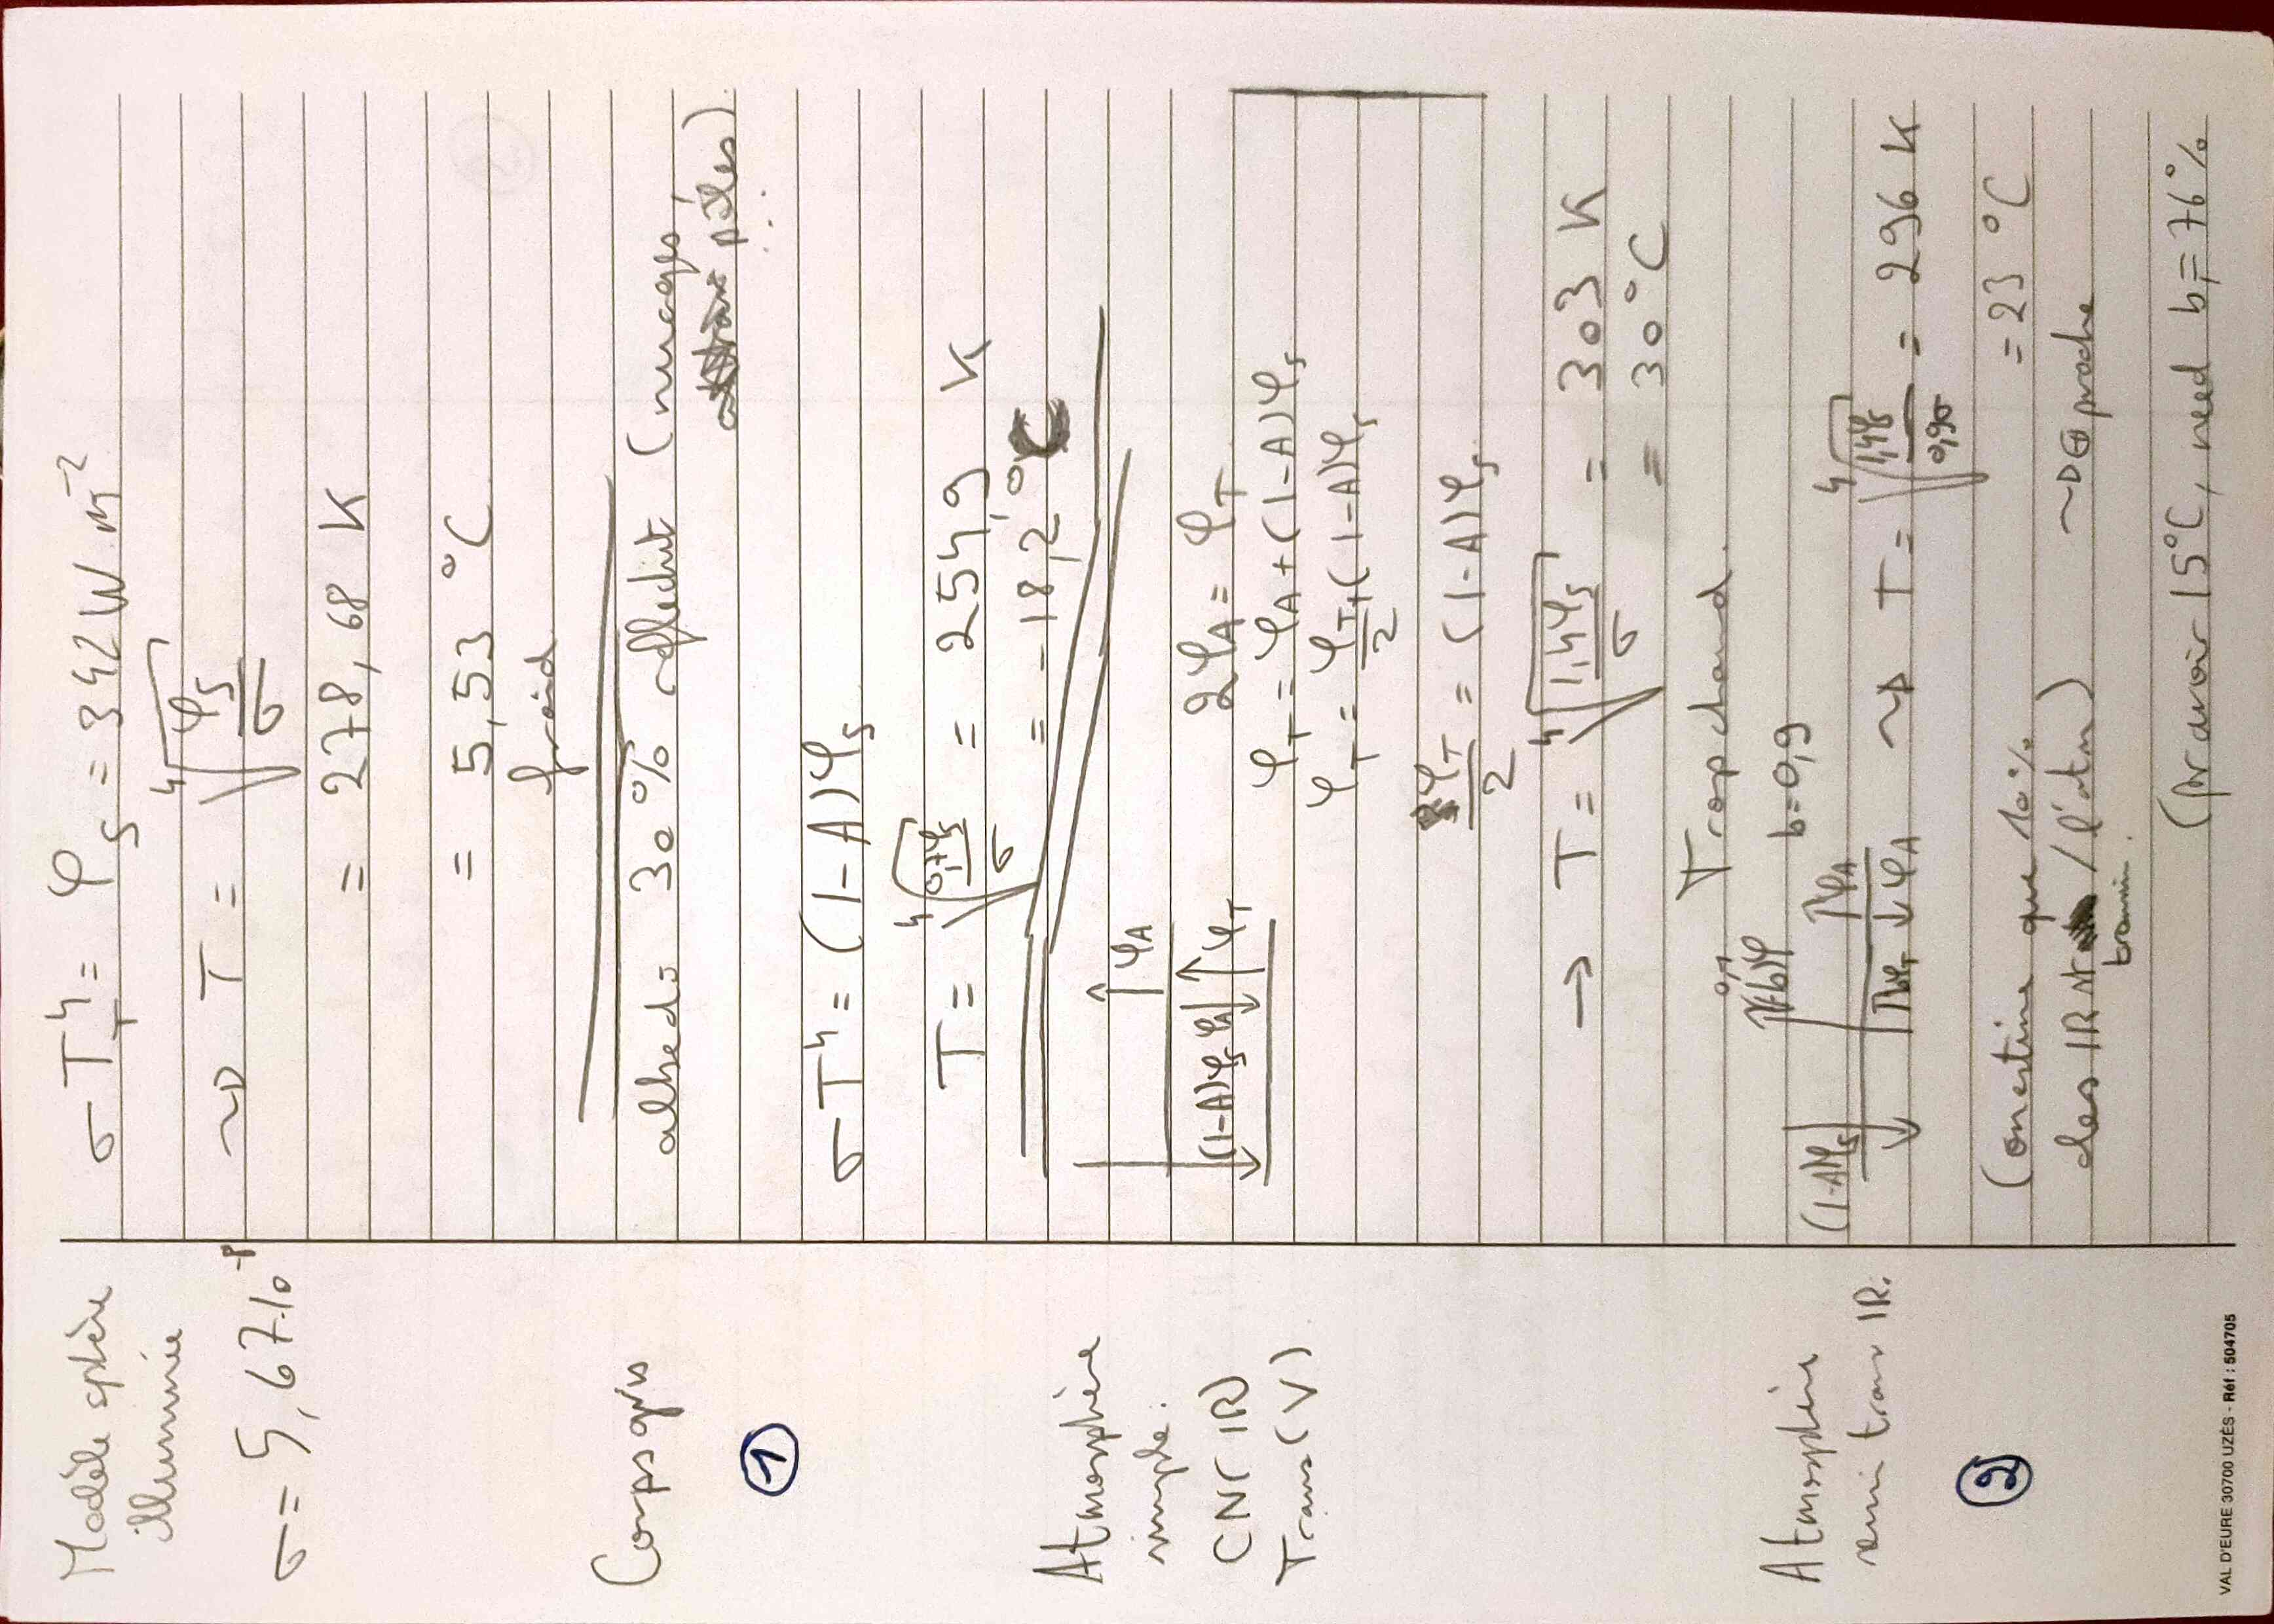 Modèle sphère
illuminée
σ = 5,67.10⁻⁸
σ T_T⁴ = φ_S = 342 W.m⁻²
~> T = ⁴√(φ_S/σ)
= 278,68 K
= 5,53 °C
froid
Corps gris
①
albedo 30% réfléchit (nuages,
pôles)
...
σT⁴ = (1-A)φ_S
T = ⁴√(0,7φ_S/σ) = 254,9 K
= -18,2 °C
Atmosphère
simple.
CN(IR)
Trans(V)
φ_A
(1-A)φ_S φ_A φ_T
2φ_A = φ_T
φ_T = φ_A + (1-A)φ_S
φ_T = φ_T/2 + (1-A)φ_S
φ_T/2 = (1-A)φ_S
→ T = ⁴√(1,4φ_S/σ) = 303 K
= 30 °C
Trop chaud.
Atmosphère
semi trans IR.
②
0,1
b=0,9
(1-A)φ_S
φ_A
φ_A
~> T = ⁴√(1,4φ_S/0,9σ) = 296 K
= 23 °C
(on estime que 10%
des IR st / l'atm)
transmis.
~> ⊕ proche
(pr avoir 15°C, need b = 76%
VAL D'EURE 30700 UZÈS - Réf : 504705